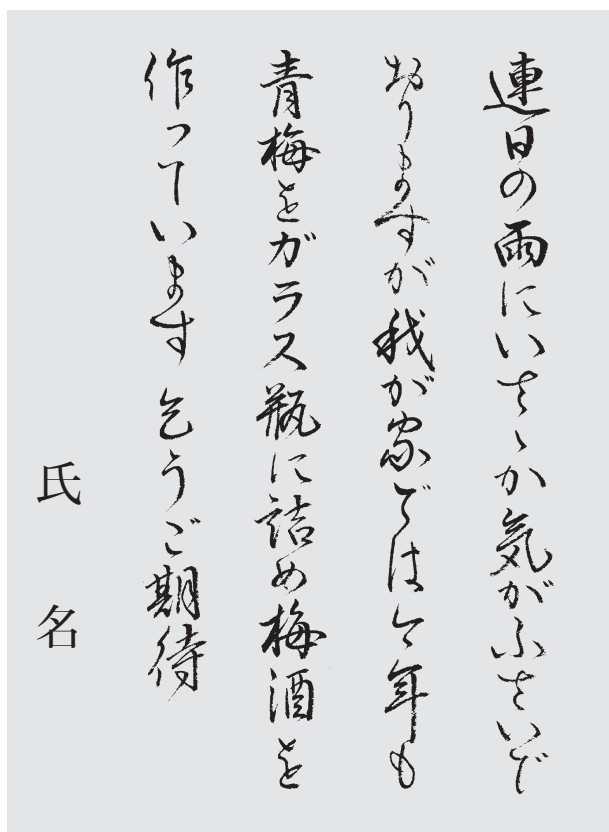 連日の雨にいさゝか気がふさいで
おりますが我が家では今年も
青梅をガラス瓶に詰め梅酒を
作っています 乞うご期待
氏名